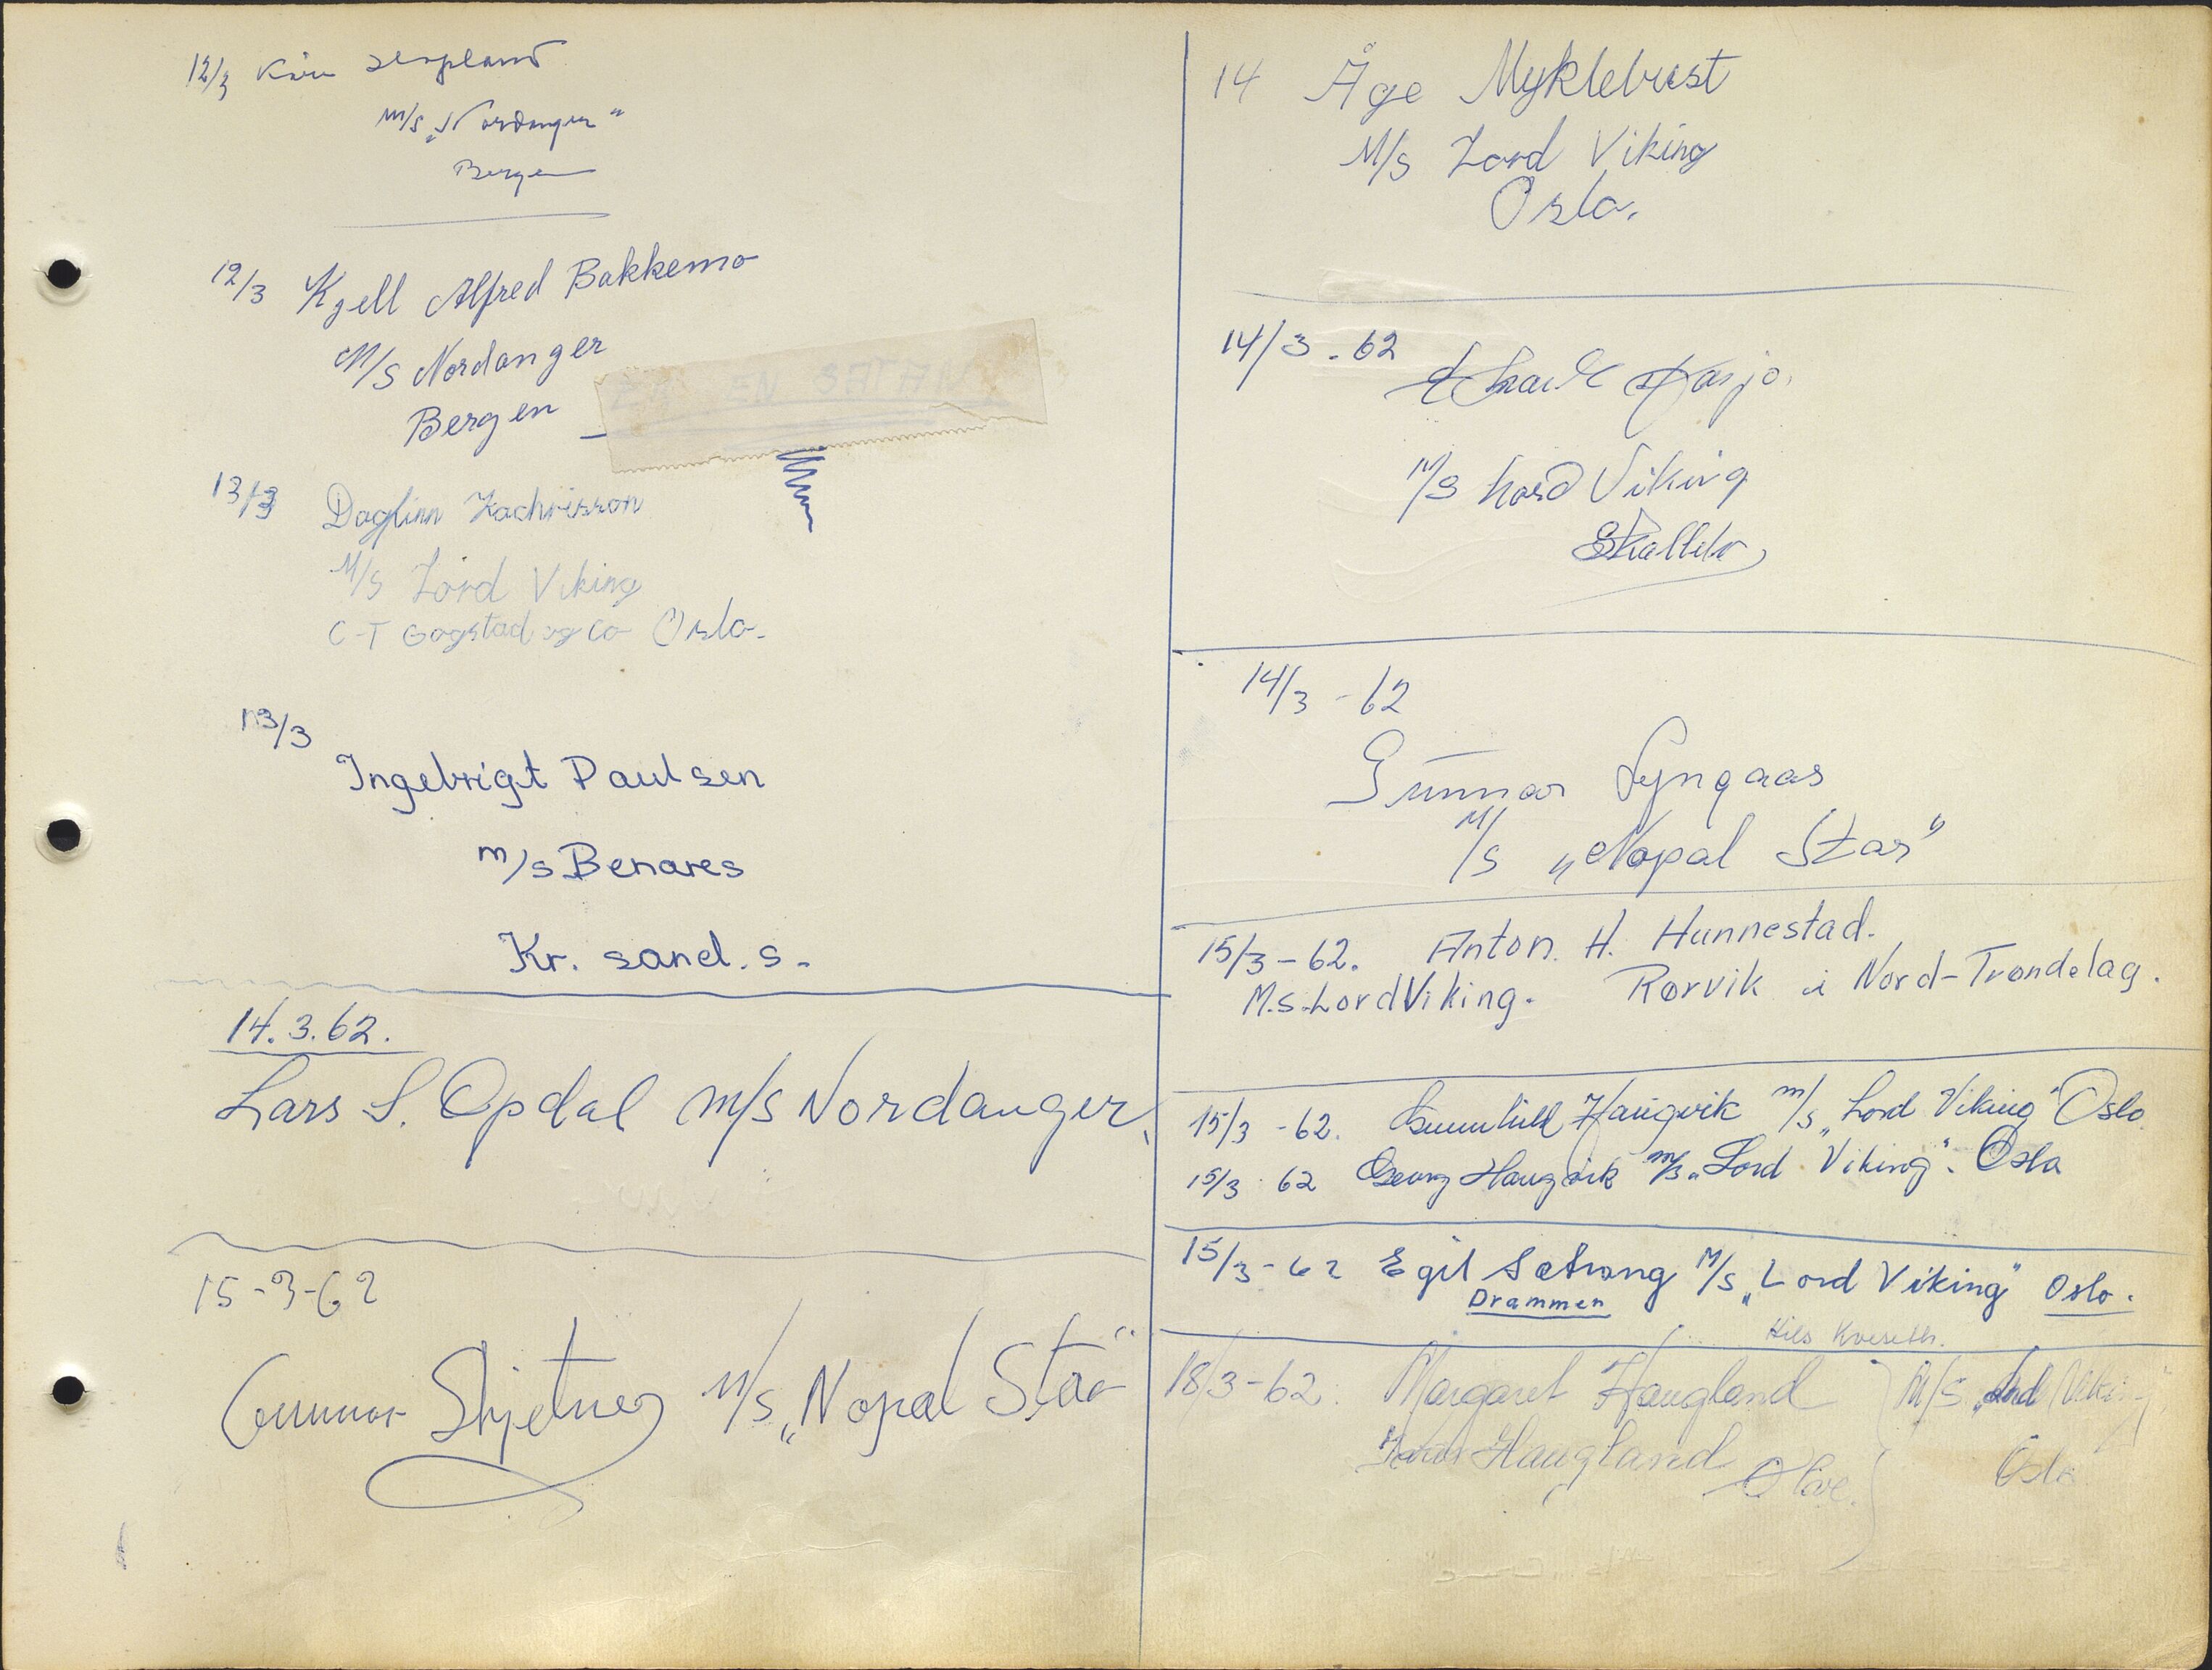 12/3
m/s „Nordanger"
Bergen
12/3 Kjell Alfred Bakkemo
M/S Nordanger
Bergen
EN SATAN
13/3 Dagfinn Zachrisson
M/S Lord Viking
C-T Gogstad og Co Oslo.
13/3
Ingebrigt Paulsen
m/s Benares
Kr. sand. s.
14.3.62.
Lars S. Opdal m/s Nordanger.
15-3-62
Gunnar Skjetnes M/S „Nopal Star"
14 Åge Myklebust
M/S Lord Viking
Oslo.
14/3 . 62
M/S Lord Viking
14/3 - 62
Gunnar Lyngaas
M/S „Nopal Star"
15/3 - 62. Anton. H. Hunnestad.
M.S. Lord Viking. Rørvik i Nord-Trøndelag.
15/3 - 62. Gunnhild Haugvik m/s „Lord Viking" Oslo
15/3 62 Georg Haugvik m/s „Lord Viking". Oslo
15/3 - 62 Egil Sætrang M/S „Lord Viking" Oslo.
Drammen
18/3-62. Margaret Haugland M/S „Lord Viking"
Haugland Oslo